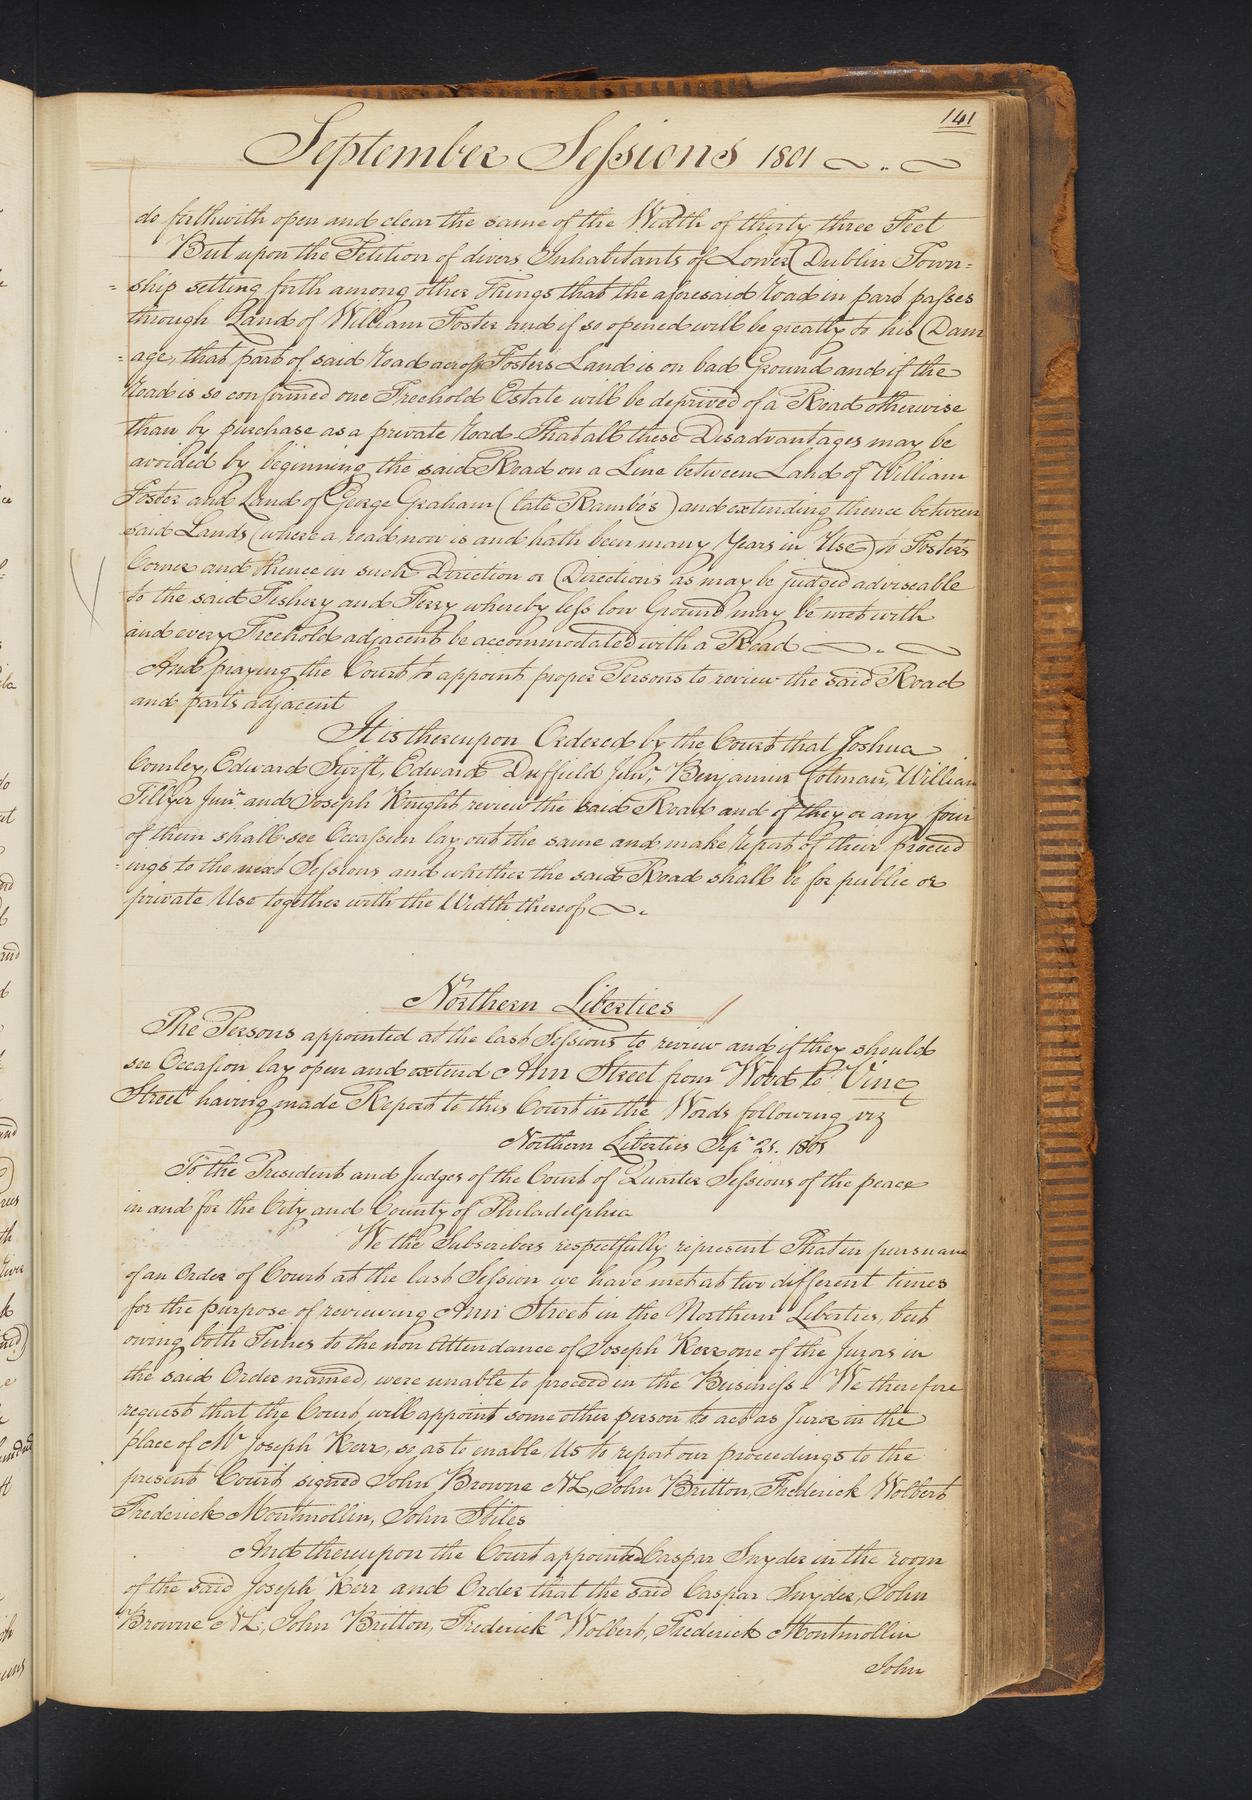 141
September Sessions 1801
do forthwith open and clear the same of the Width of thirty three Feet
But upon the Petition of divers Inhabitants of Lower Dublin Town=
=ship setting forth among other Things that the aforesaid road in part passes
through Land of William Foster and if so opened will be greatly to his Dam
=age, that part of said road across Fosters Land is on bad Ground and if the
road is so confirmed one Freehold Estate will be deprived of a Road otherwise
than by purchase as a private road That all these Disadvantages may be
avoided by beginning the said Road on a Line between Land of William
Foster and Land of George Graham (late Rambo's) and extending thence between
said Lands (where a road now is and hath been many Years in Use) to Foster's
Corner and thence in such Direction or Directions as may be judged adviseable
to the said Fishery and Ferry whereby less low Ground may be met with
and every Freehold adjacent be accommodated with a Road
And praying the Court to appoint proper Persons to review the said Road
and parts adjacent
It is thereupon Ordered by the Court that Joshua
Comley, Edward Swift, Edward Duffield Junr. Benjamin Cotman, William
Tillyer Junr. and Joseph Knight review the said Road and if they or any four
of them shall see Occasion lay out the same and make report of their proceed
=ings to the next Sessions and whether the said Road shall be for public or
private Use together with the Width thereof
Northern Liberties
The Persons appointed at the last Sessions to review and if they should
see Occasion lay open and extend Ann Street from Wood to Vine
Street having made Report to this Court in the Words following viz
Northern Liberties Sepr 21. 1801
To the President and Judges of the Court of Quarter Sessions of the peace
in and for the City and County of Philadelphia
We the Subscribers respectfully represent That in pursuance
of an Order of Court at the last Session we have met at two different times
for the purpose of reviewing Ann Street in the Northern Liberties, but
owing both Times to the non Attendance of Joseph Kerr one of the Jurors in
the said Order named, were unable to proceed in the Business. We therefore
request that the Court will appoint some other person to act as Juror in the
place of Mr Joseph Kerr, so as to enable Us to report our proceedings to the
present Court signed John Browne NL, John Britton, Frederick Wolbert
Frederick Montmollin, John Stiles
And thereupon the Court appointed Caspar Snyder in the room
of the said Joseph Kerr and Order that the said Caspar Snyder, John
Browne NL, John Britton, Frederick Wolbert, Frederick Montmollin
John